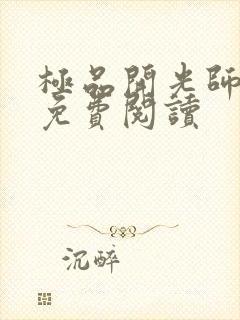 極品開光師
免費閱讀
沉醉